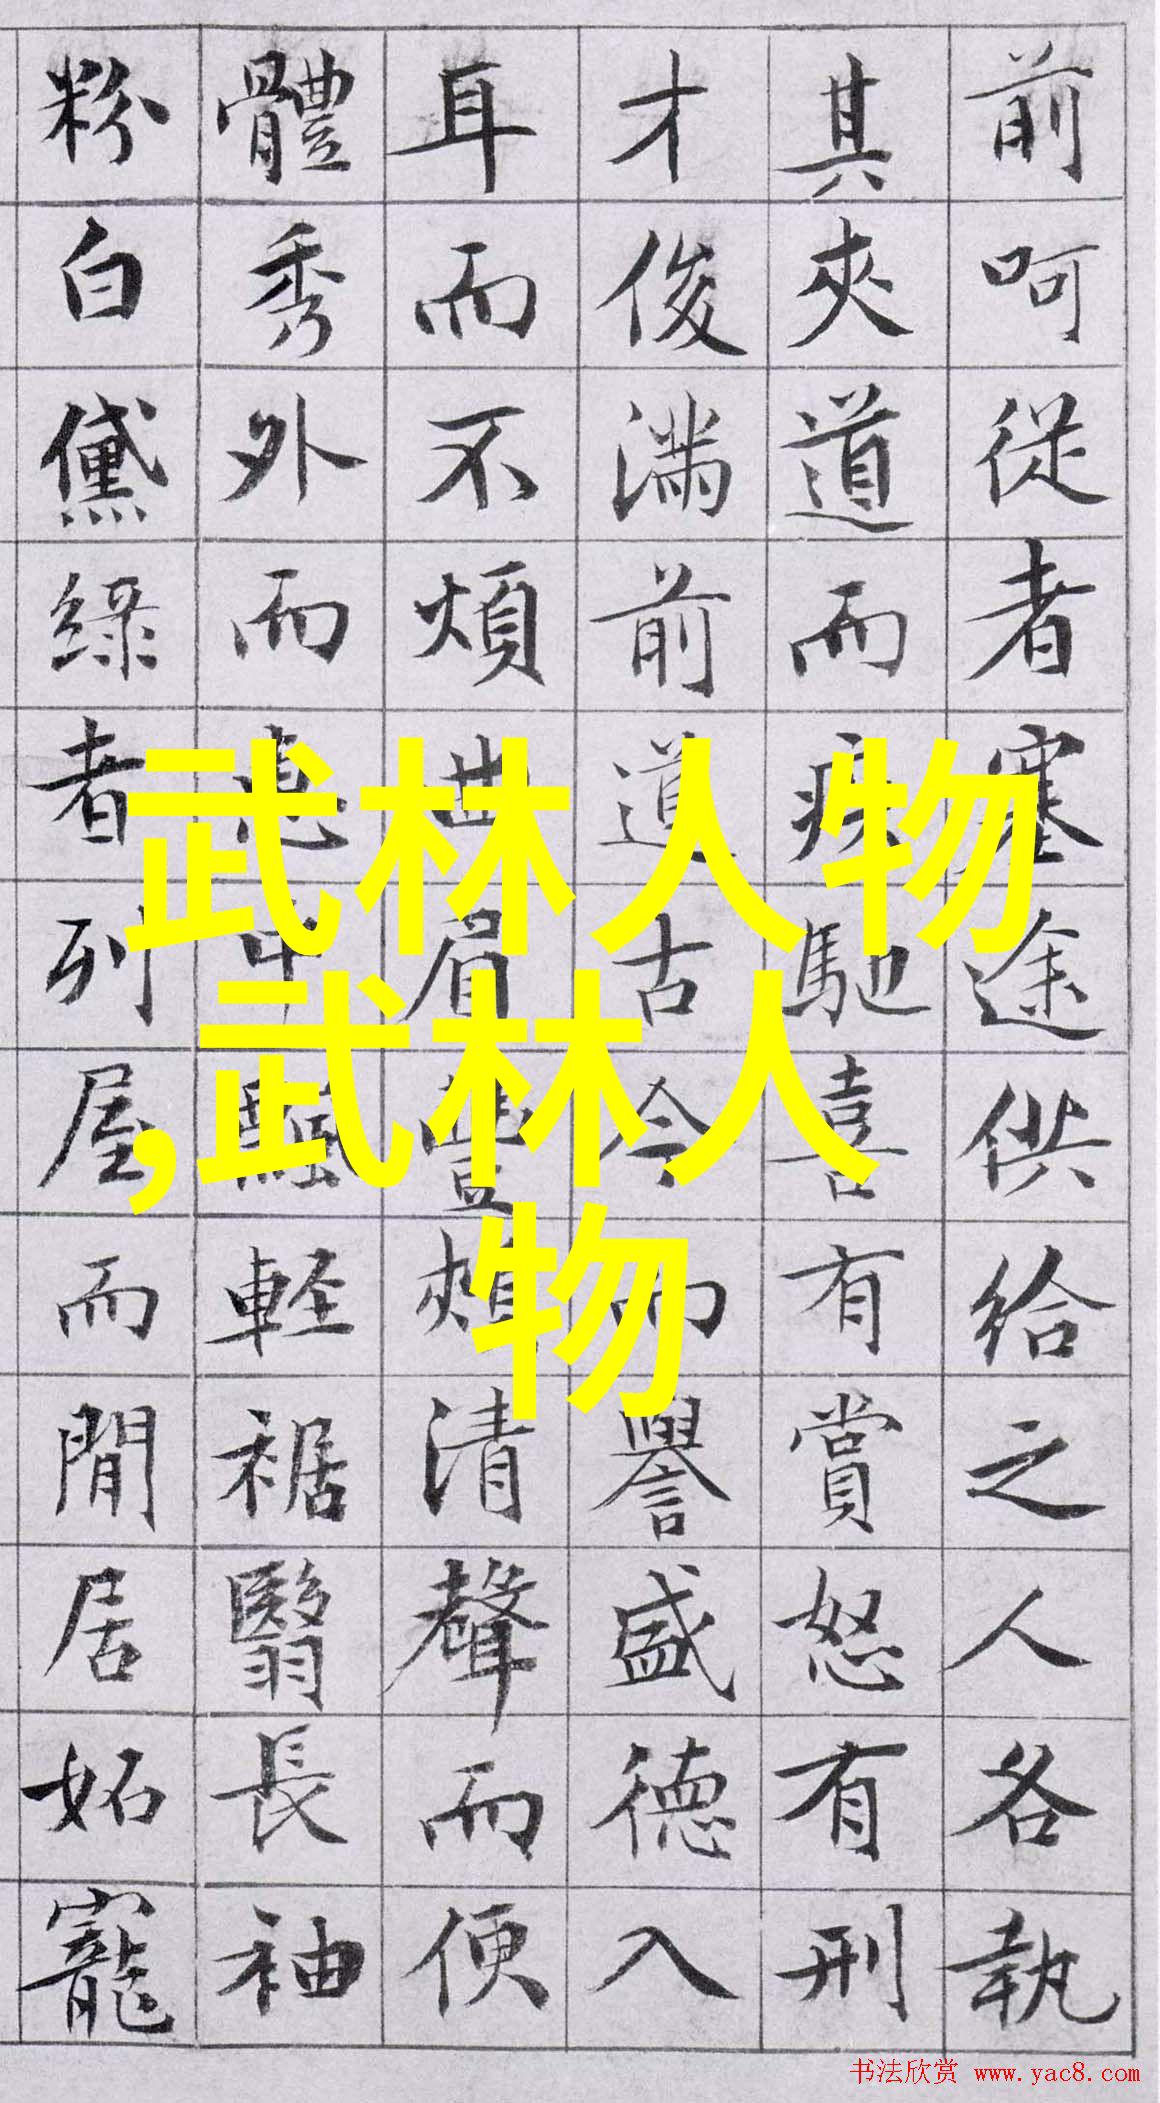 前呵從者塞途供給之人各執
其夾道而疾馳喜有賞怒有刑
才俊滿前道古今而譽盛徳入
耳而不煩曲眉豐頰清聲而便
體秀外而惠中飄軽裾翳長袖
粉白黛綠者列屋而閒居妬寵
武林人物
,武林人
物
书法欣赏 www.yac8.com